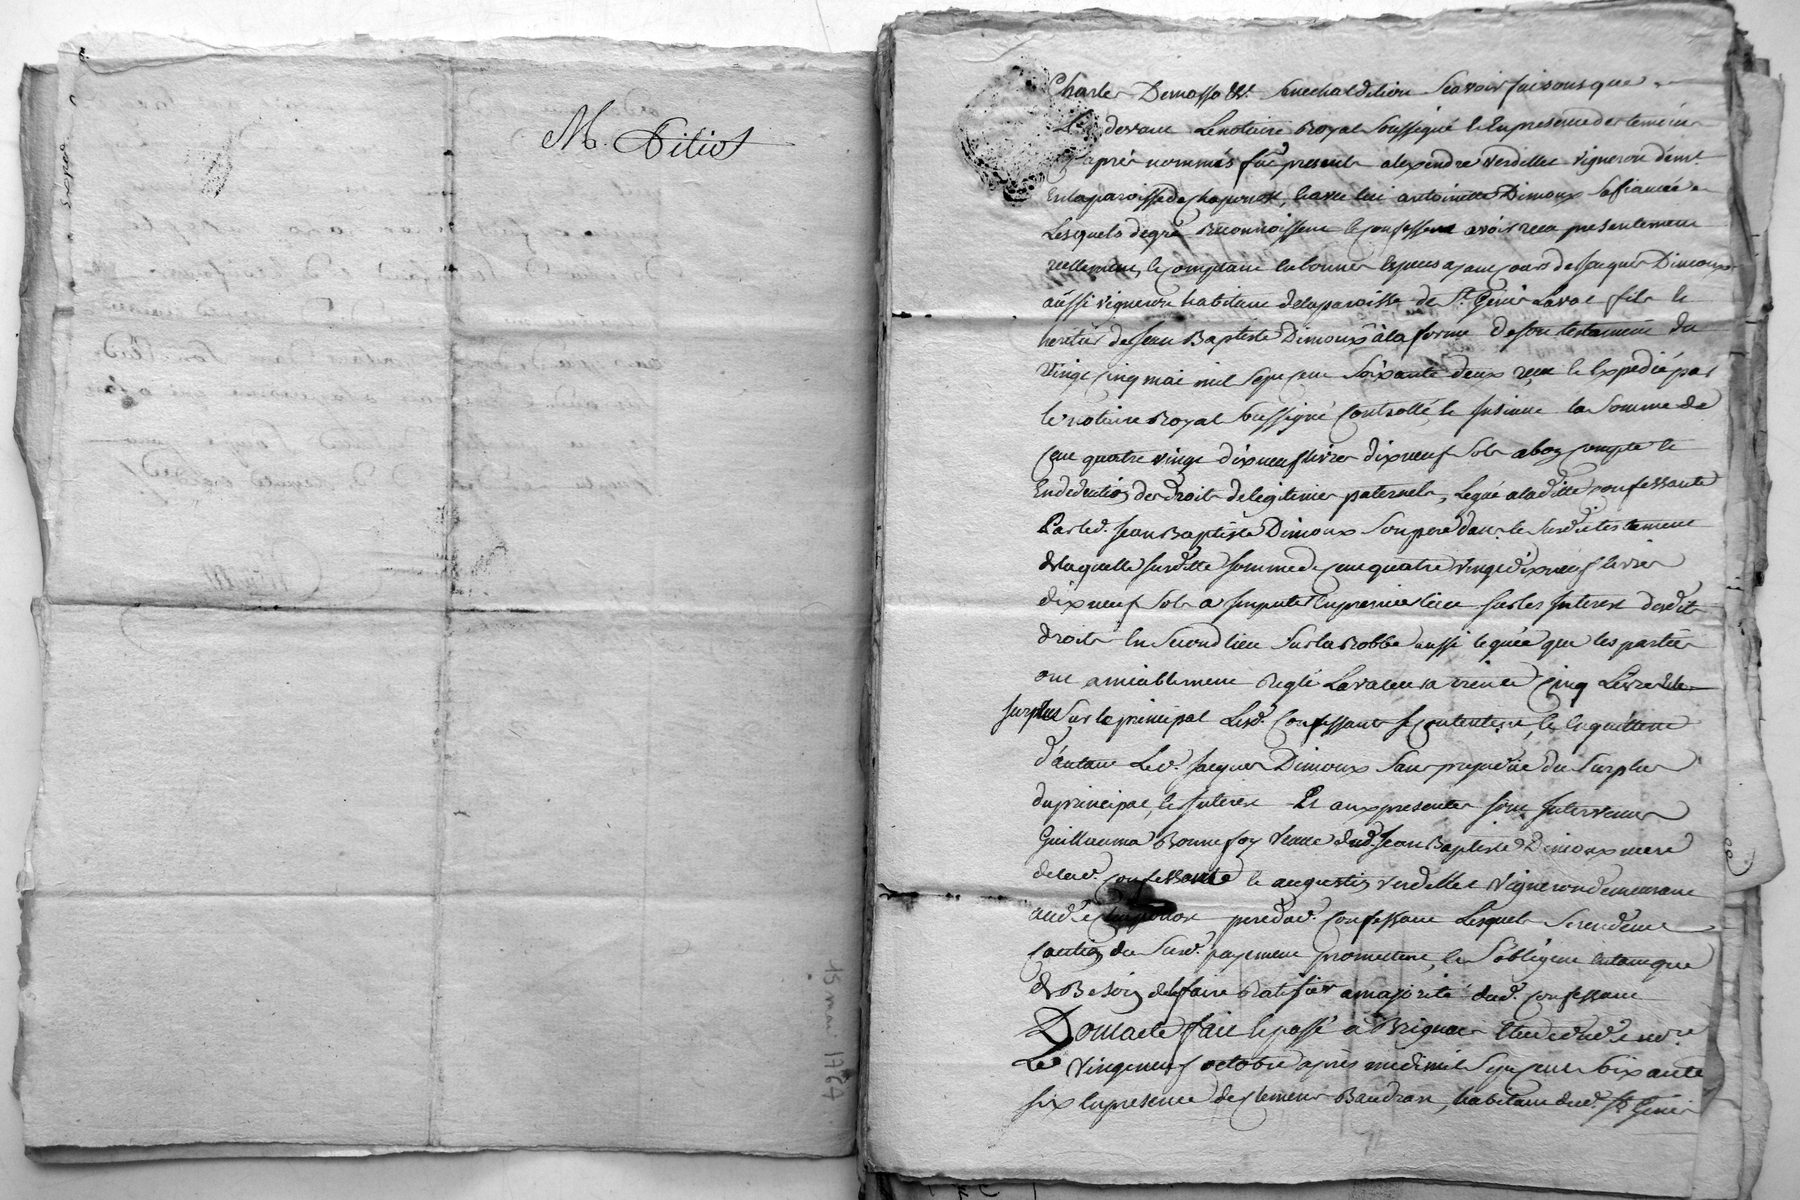 M. Pitiot
Charles Demasso &c. Senechal de lion Scavoir faisons que
Par devant Le notaire Royal soussigné & En presence des temoins
Cy après nommés fut present alexandre verdellet vigneron demt.
En la paroisse de chaponost, & avec lui antoinette Dimoux sa fiancée
Lesquels de gré Reconnoissent & confessent avoir recu presentement
reellement, & comptant En bonnes Especes ayant cours de Jaques Dimoux
aussi vigneron habitant de la paroisse de St. Genis Laval fils &
heritier de Jean Baptiste Dimoux à la forme de son testament du
vingt cinq mai mil sept cent soixante deux recu & Expedié par
le notaire Royal soussigné Controllé, & Insinué la somme de
Cent quatre vingt dix neuf livres dix neuf sols a bon compte &
En deduction des droits de legitimes paternels, Legué a la ditte confessante
Par led. Jean Baptiste Dimoux son pere dans le susdit testament
de laquelle susditte somme de cent quatre vingt dix neuf livres
dix neuf sols a Imputer En premier lieu sur les Interest desdits
droits En second lieu sur la Robbe aussi leguée que les parties
ont amiablement Reglé La valeur a trente Cinq Livres & le
surplus sur le principal Lesd. Confessants se contentent, & En quittent
d'autant Led. Jacques Dimoux sans prejudice du surplus
du principal, & Interest Et aux presentes sont Intervenus
Guillauma Bonnefoy veuve dud. Jean Baptiste Dimoux mere
de lad. confessante & augustin verdellet vigneron demeurant
aud. chaponost pere dud. confessant Lesquels se rendent
Caution du susd. payement promettent, & s'obligent En tant que
de Besoin de le faire Ratifier a majorité dud. confessant
Dont acte fait & passé a Brignais Etude dud. nore.
Le vingt neuf octobre après midi mil sept cent soixante
six En presence de clement Baudran, habitant dud. St Genis
15 mai 1757